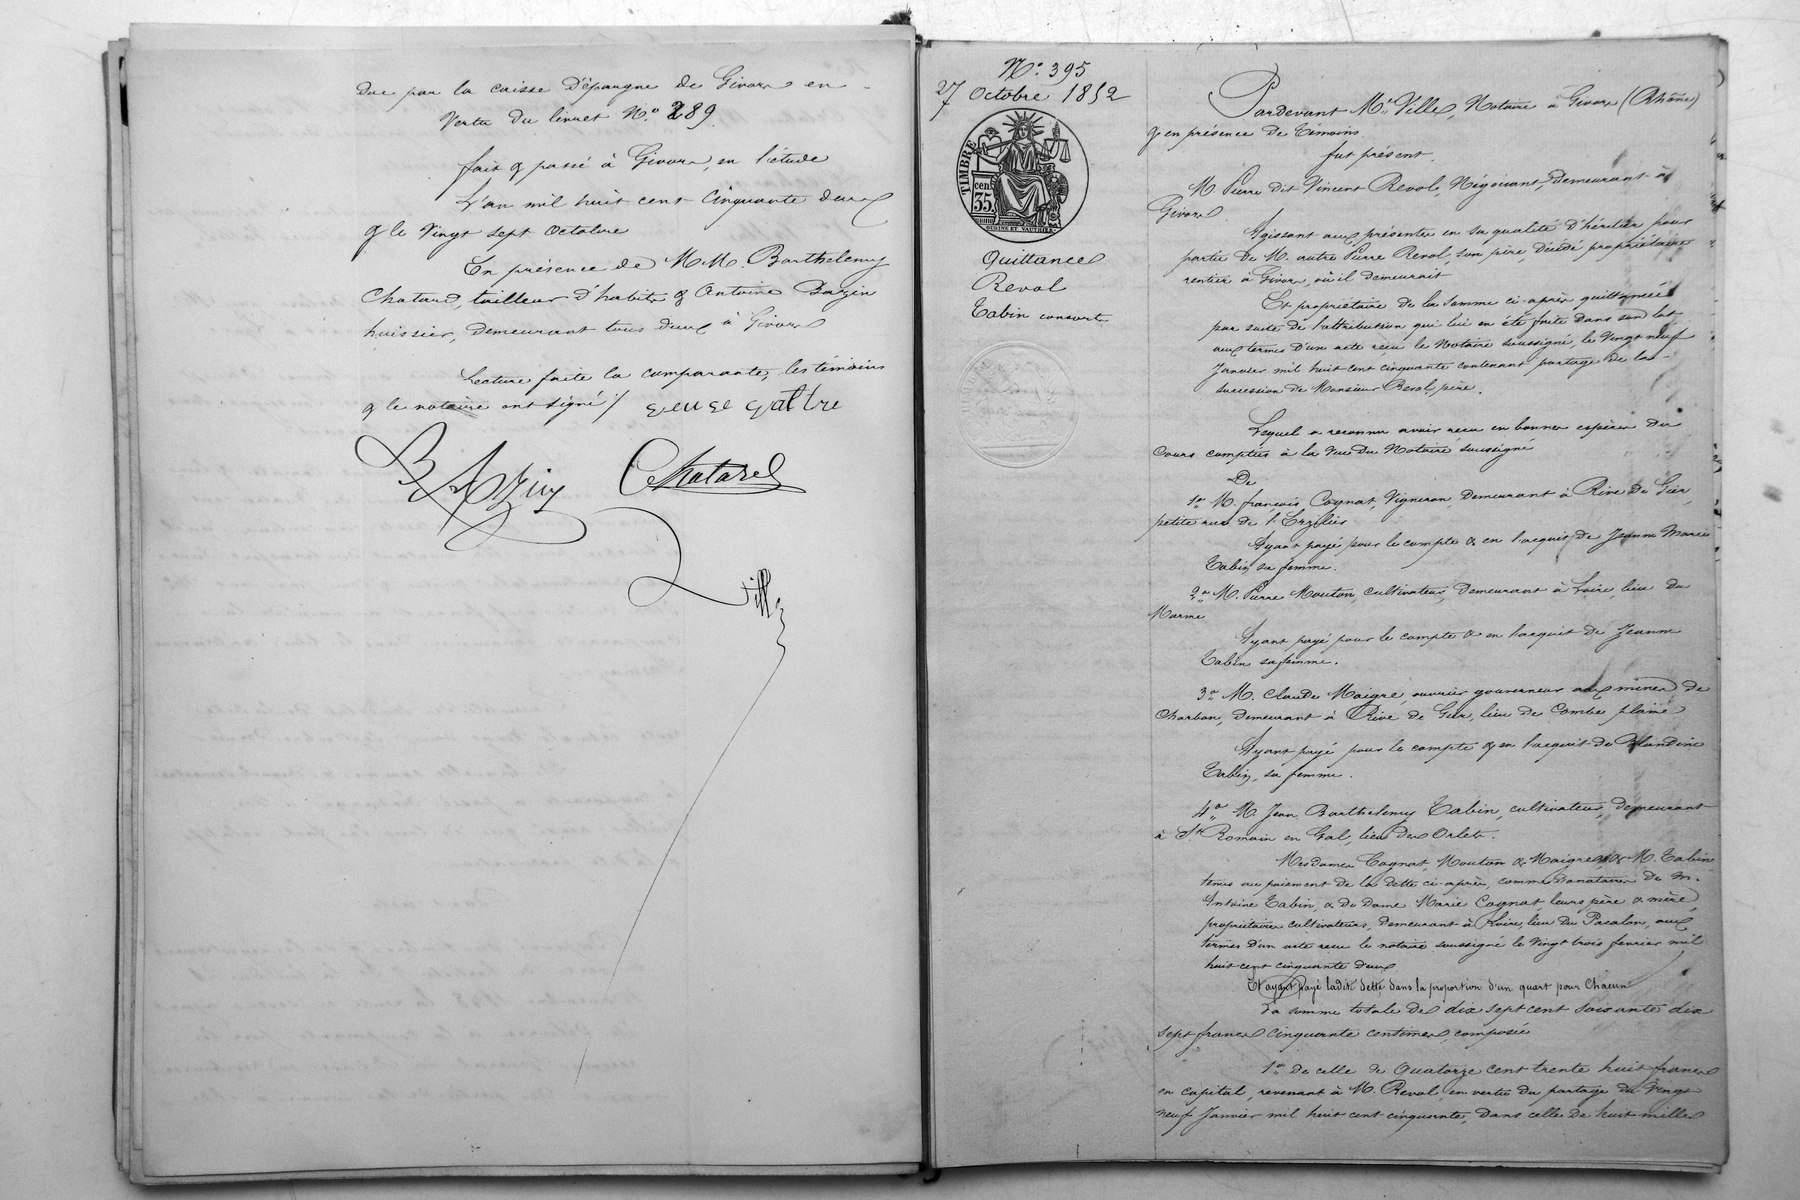 due par la caisse d'épargne de Givors en
vertu du livret N° 289.
fait & passé à Givors, en l'étude
L'an mil huit cent cinquante deux
& le vingt sept octobre
En présence de M.M. Barthelemy
Chatard, tailleur d'habits & Antoine Bazin
huissier, demeurant tous deux à Givors
Lecture faite la comparante, les témoins
& le notaire ont signé /
BAzin Chatard
Ville
N° 395
27 octobre 1852
TIMBRE
cen 35
Quittance
Revol
Tabin consorts
Pardevant Me Ville, Notaire à Givors (Rhône)
& en présence de témoins.
fut présent
M. Pierre dit Vincent Revol, Négociant, demeurant à
Givors
Agissant aux présentes en sa qualité d'héritier pour
partie de M. autre Pierre Revol, son père, décédé propriétaire
rentier à Givors, où il demeurait
Et propriétaire de la somme ci-après quittancée
par suite de l'attribution qui lui en été faite dans son lot
aux termes d'un acte reçu le Notaire soussigné, le vingt neuf
Janvier mil huit cent cinquante contenant partage de la
succession de Monsieur Revol, père.
Lequel a reconnu avoir reçu en bonnes espèces du
cours comptées à la vue du Notaire soussigné
De
1° M. françois Cognat, Vigneron, demeurant à Rive de Gier,
petite rue de
Ayant payé pour le compte & en l'acquit de Jeanne Marie
Tabin sa femme.
2° M. Pierre Mouton, cultivateur, demeurant à Loire, lieu du
Marme
Ayant payé pour le compte & en l'acquit de Jeanne
Tabin sa femme.
3° M. Claude Maigre, ouvrier gouverneur aux mines de
Charbon, demeurant à Rive de Gier, lieu de Combe plaine
Ayant payé pour le compte & en l'acquit de Blandine
Tabin, sa femme.
4° M. Jean Barthelemy Tabin, cultivateur, demeurant
à St Romain en Gal, lieu des Orlets.
Mesdames Cognat, Mouton & Maigre, & M. Tabin
tenus au paiement de la dette ci-après, comme donataires de M.
Antoine Tabin, & de Dame Marie Cognat, leurs père & mère,
propriétaires cultivateurs, demeurant à Loire, lieu du Pacalon, aux
termes d'un acte reçu le notaire soussigné le vingt trois fevrier mil
huit cent cinquante deux
Et ayant payé ladite dette dans la proportion d'un quart pour Chacun
La somme totale de dix sept cent soixante dix
sept francs cinquante centimes, composée
1° De celle de Quatorze cent trente huit francs
en capital, revenant à M. Revol, en vertu du partage du vingt
neuf Janvier mil huit cent cinquante, dans celle de huit mille